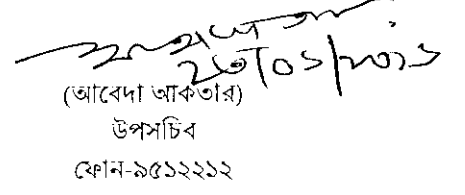 ২৩/০১/২০১১
(আবেদা আকতার)
উপসচিব
ফোন-৯৫১২২১২